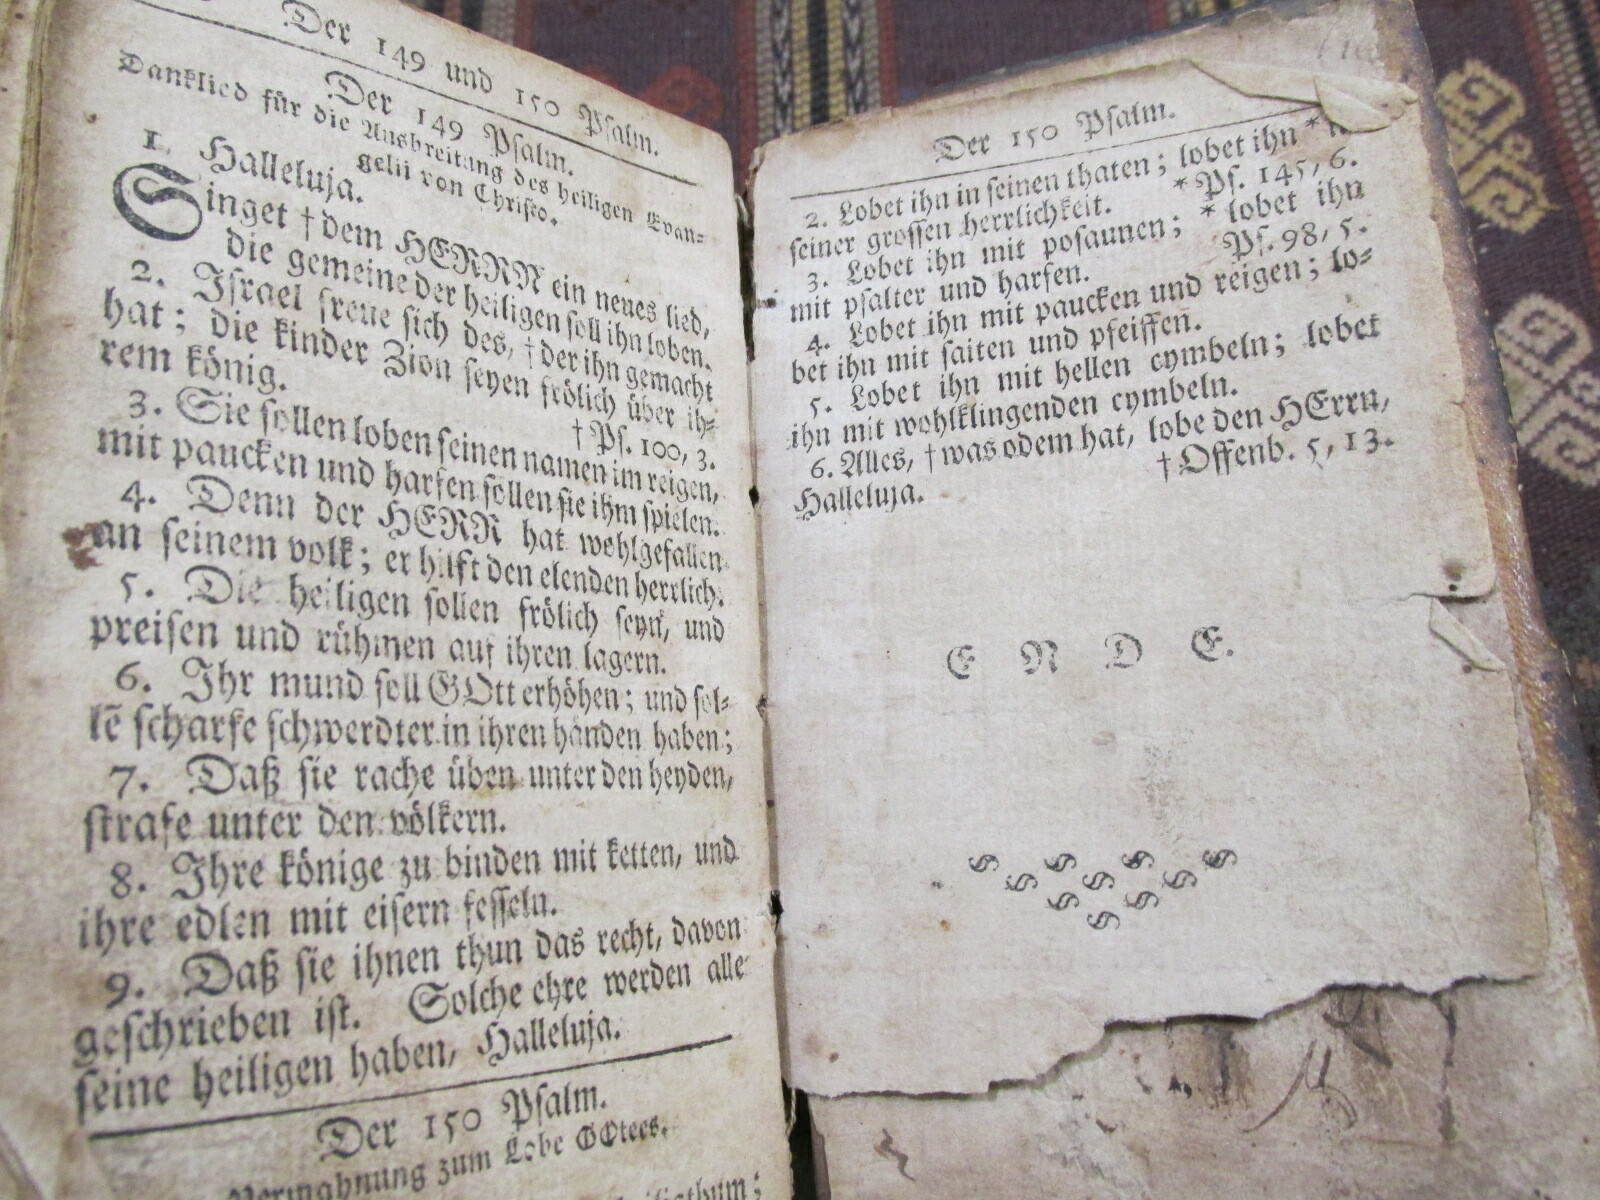 Der 149 und 150 Psalm.
Der 149 Psalm.
Danklied für die Ausbreitung des heiligen Evan-
gelii von Christo.
1. Halleluja.
Singet † dem HERRN ein neues lied,
die gemeine der heiligen soll ihn loben.
2. Israel freue sich des, † der ihn gemacht
hat; die kinder Zion seyen frölich über ih-
rem könig.
† Ps. 100, 3.
3. Sie sollen loben seinen namen im reigen,
mit paucken und harfen sollen sie ihm spielen.
4. Denn der HERR hat wohlgefallen
an seinem volk; er hilft den elenden herrlich.
5. Die heiligen sollen frölich seyn, und
preisen und rühmen auf ihren lagern.
6. Ihr mund soll GOtt erhöhen; und sol-
lē scharfe schwerdter in ihren händen haben;
7. Daß sie rache üben unter den heyden,
strafe unter den völkern.
8. Ihre könige zu binden mit ketten, und
ihre edlen mit eisern fesseln.
9. Daß sie ihnen thun das recht, davon
geschrieben ist. Solche ehre werden alle
seine heiligen haben, Halleluja.
Der 150 Psalm.
Vermahnung zum Lobe GOttes.
Der 150 Psalm.
2. Lobet ihn in seinen thaten; lobet ihn *
seiner grossen herrlichkeit. * Ps. 145, 6.
3. Lobet ihn mit posaunen; * lobet ihn
mit psalter und harfen. Ps. 98, 5.
4. Lobet ihn mit paucken und reigen; lo-
bet ihn mit saiten und pfeiffen.
5. Lobet ihn mit hellen cymbeln; lobet
ihn mit wohlklingenden cymbeln.
6. Alles, † was odem hat, lobe den HErrn,
Halleluja. † Offenb. 5, 13.
E N D E.